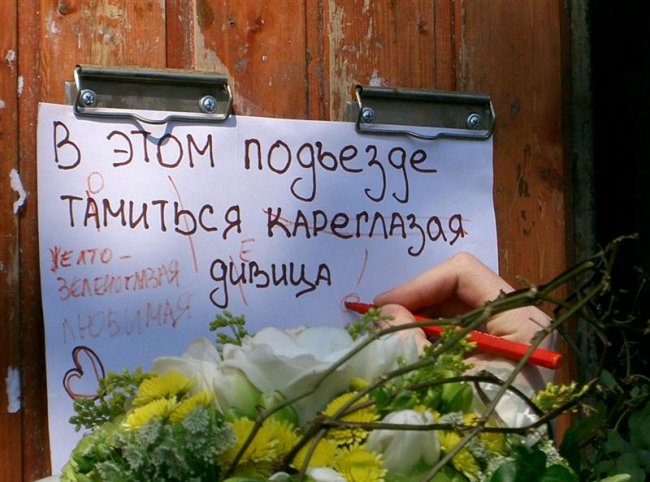 В ЭТОМ подъезде
О
ТАМИТЬСЯ КАРЕГЛАЗАЯ
Е
ДИВИЦА
ЖЕЛТО-
ЗЕЛЕНОГЛАЗАЯ
ЛЮБИМАЯ